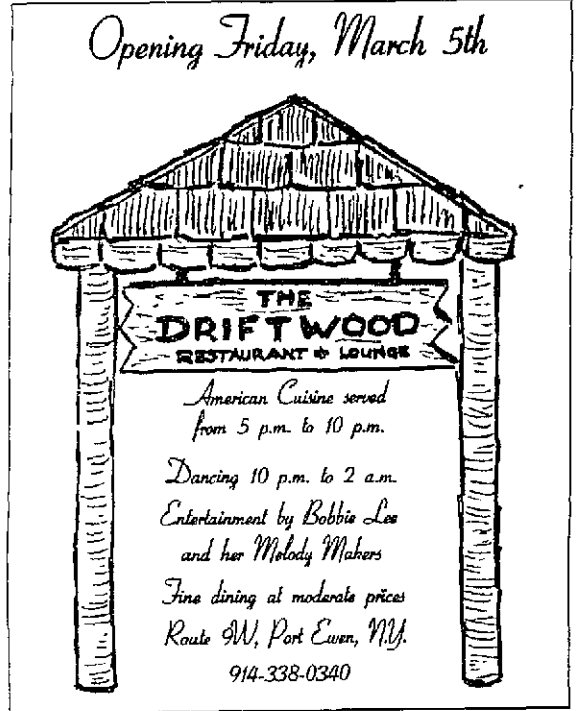 Opening Friday, March 5th
THE
DRIFTWOOD
RESTAURANT & LOUNGE
American Cuisine served
from 5 p.m. to 10 p.m.
Dancing 10 p.m. to 2 a.m.
Entertainment by Bobbie Lee
and her Melody Makers
Fine dining at moderate prices
Route 9W, Port Ewen, N.Y.
914-338-0340